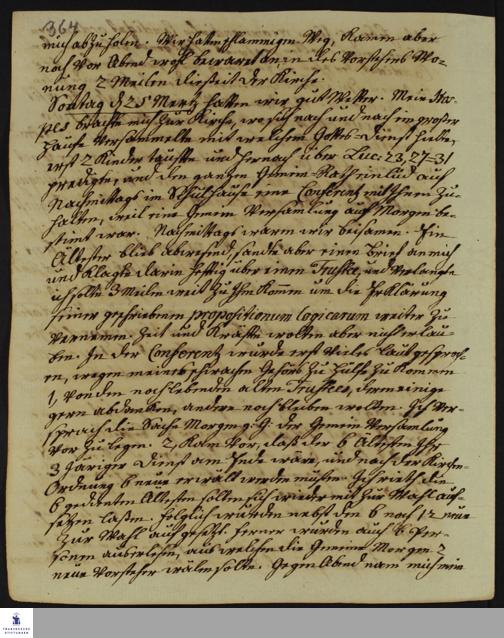 364
mich abzuholen. Wir hatten schlammigen Weg, kamen aber
noch vor Abend wohl bewart an in des Vorstehers Wo-
nung 2 Meilen disseit der Kirche.
Sontag d 25 Mertz hatten wir gut Wetter. Mein Hos-
pes brachte mich zur Kirche, wo sich nach und nach ein großer
Haufe versammelte mit welchem Gottes-Dienst hielte,
erst 2 Kinder tauffte und hernach über Luc: 23, 27-31
predigte, und den ganzen Gemein-Rath einlud auf
Nachmittags im Schulhause eine Conferentz mit ihnen zu
halten, weil eine Gemein Versamlung auf Morgen be-
stimt war. Nachmittags waren wir beisamen. Ein
Ältester blieb abwesend, sandte aber einen Brief an mich
und klagte darin heftig über einen Trustee, und verlangte
ich solte 3 Meilen weit zu ihm kommen um die Erklärung
seiner geschriebenen propositionum logicarum weiter zu
vernemen. Zeit und Kräffte wolten aber nicht erlau-
ben. In der Conferentz wurde erst vieles laut gesproch-
en, wegen meines schwachen Gehörs zu Hülfe zu kommen
1, von den noch lebenden alten Trustees, deren einige
gern abdanken, andere noch bleiben wolten. Ich ver-
sprach die Sache Morgen g. G. der Gemein Versamlung
vor zu legen. 2, kam vor, daß der 6 Ältesten ihr
3 Järiger Dienst am Ende wäre, und nach der Kirchen-
Ordnung 6 neue erwält werden müsten. Ich rieth die
6 gedienten Ältesten solten sich wieder mit zur Wahl auf-
setzen laßen. Folglich wurden nebst den 6 noch 12 neue
zur Wahl aufgesetzt. ferner wurden auch 6 Per-
sonen auserlesen, aus welchen die Gemeine Morgen 2
neue Vorsteher wälen solte. Gegen Abend nam mich mein
FRANCKESCHE STIFTUNGEN